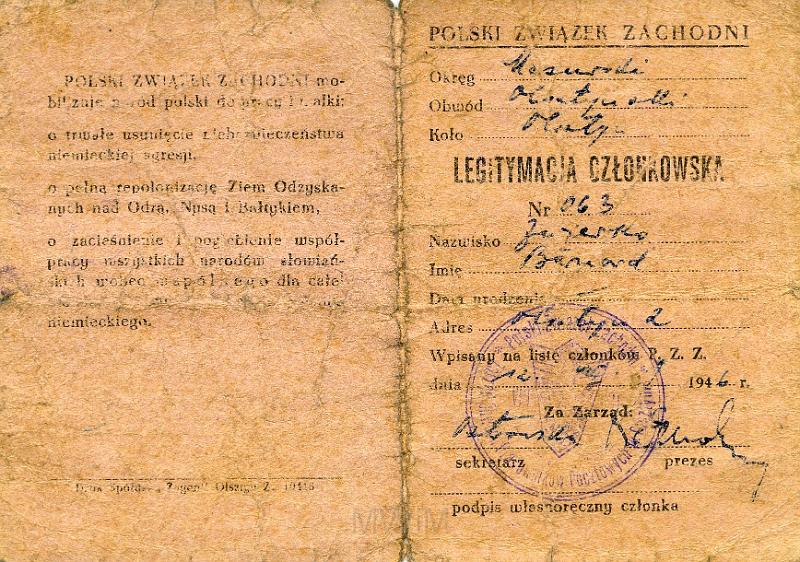 POLSKI ZWIĄZEK ZACHODNI mo-
bilizuje naród polski do pracy i walki:
o trwałe usunięcie niebezpieczeństwa
niemieckiej agresji,
o pełną repolonizację Ziem Odzyska-
nych nad Odrą, Nysą i Bałtykiem,
o zacieśnienie i pogłębienie współ-
pracy wszystkich narodów słowiań-
skich wobec wspólnego dla całej
niemieckiego.
Druk Spółdz. „Zagon" Olsztyn Z.
POLSKI ZWIĄZEK ZACHODNI
Okręg Mazurski
Obwód Olsztyński
Koło Olsztyn
LEGITYMACJA CZŁONKOWSKA
Nr 063
Nazwisko
Imię Bernard
Data urodzenia
Adres Olsztyn 2
Wpisany na listę członków P. Z. Z.
dnia 12. 1946 r.
Za Zarząd:
sekretarz prezes
podpis własnoręczny członka